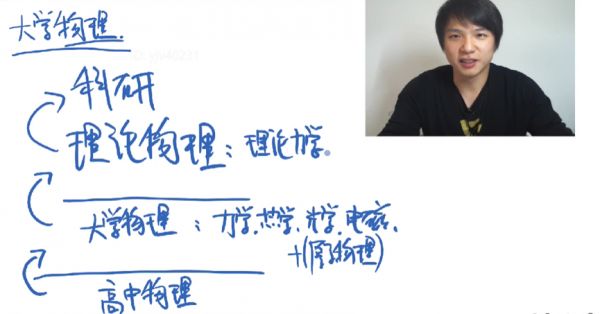 大学物理.
科研
理论物理：理论力学。
大学物理：力学,热学,光学,电磁,
+(原子物理)
高中物理